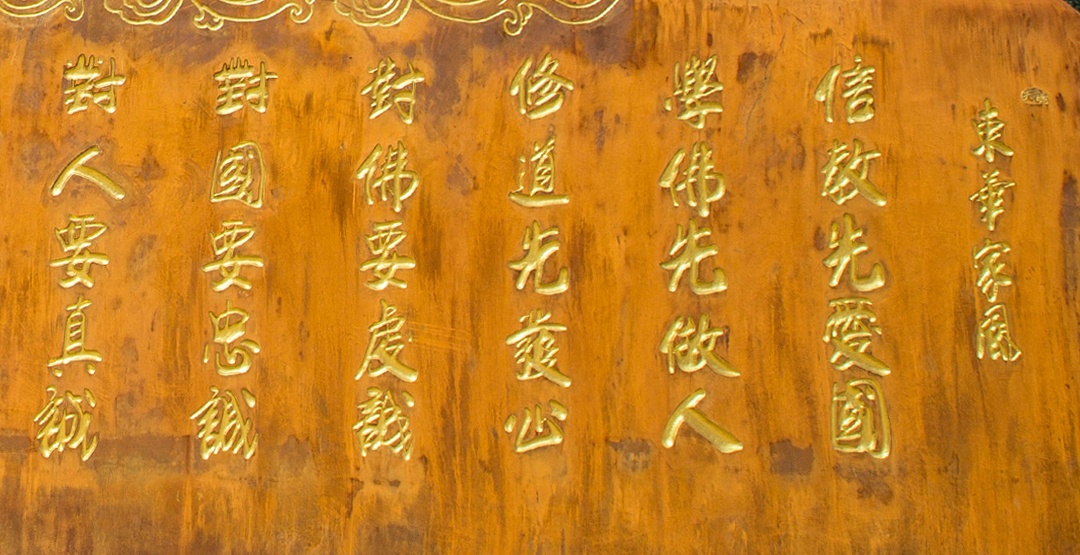 東華家風
信教先愛國
學佛先做人
修道先發心
對佛要虔誠
對國要忠誠
對人要真誠